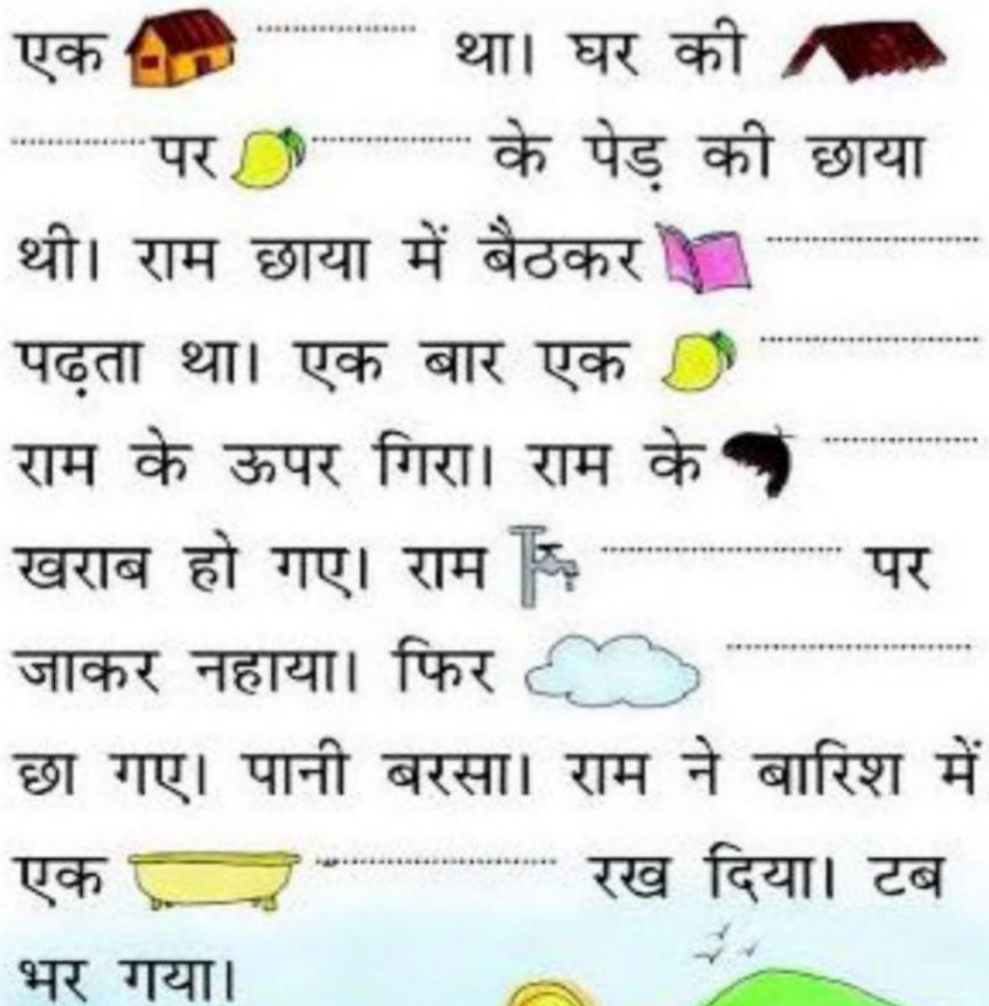 एक ................ था। घर की
............. पर ................ के पेड़ की छाया
थी। राम छाया में बैठकर .....................
पढ़ता था। एक बार एक .....................
राम के ऊपर गिरा। राम के ...............
खराब हो गए। राम ........................ पर
जाकर नहाया। फिर ........................
छा गए। पानी बरसा। राम ने बारिश में
एक ........................ रख दिया। टब
भर गया।